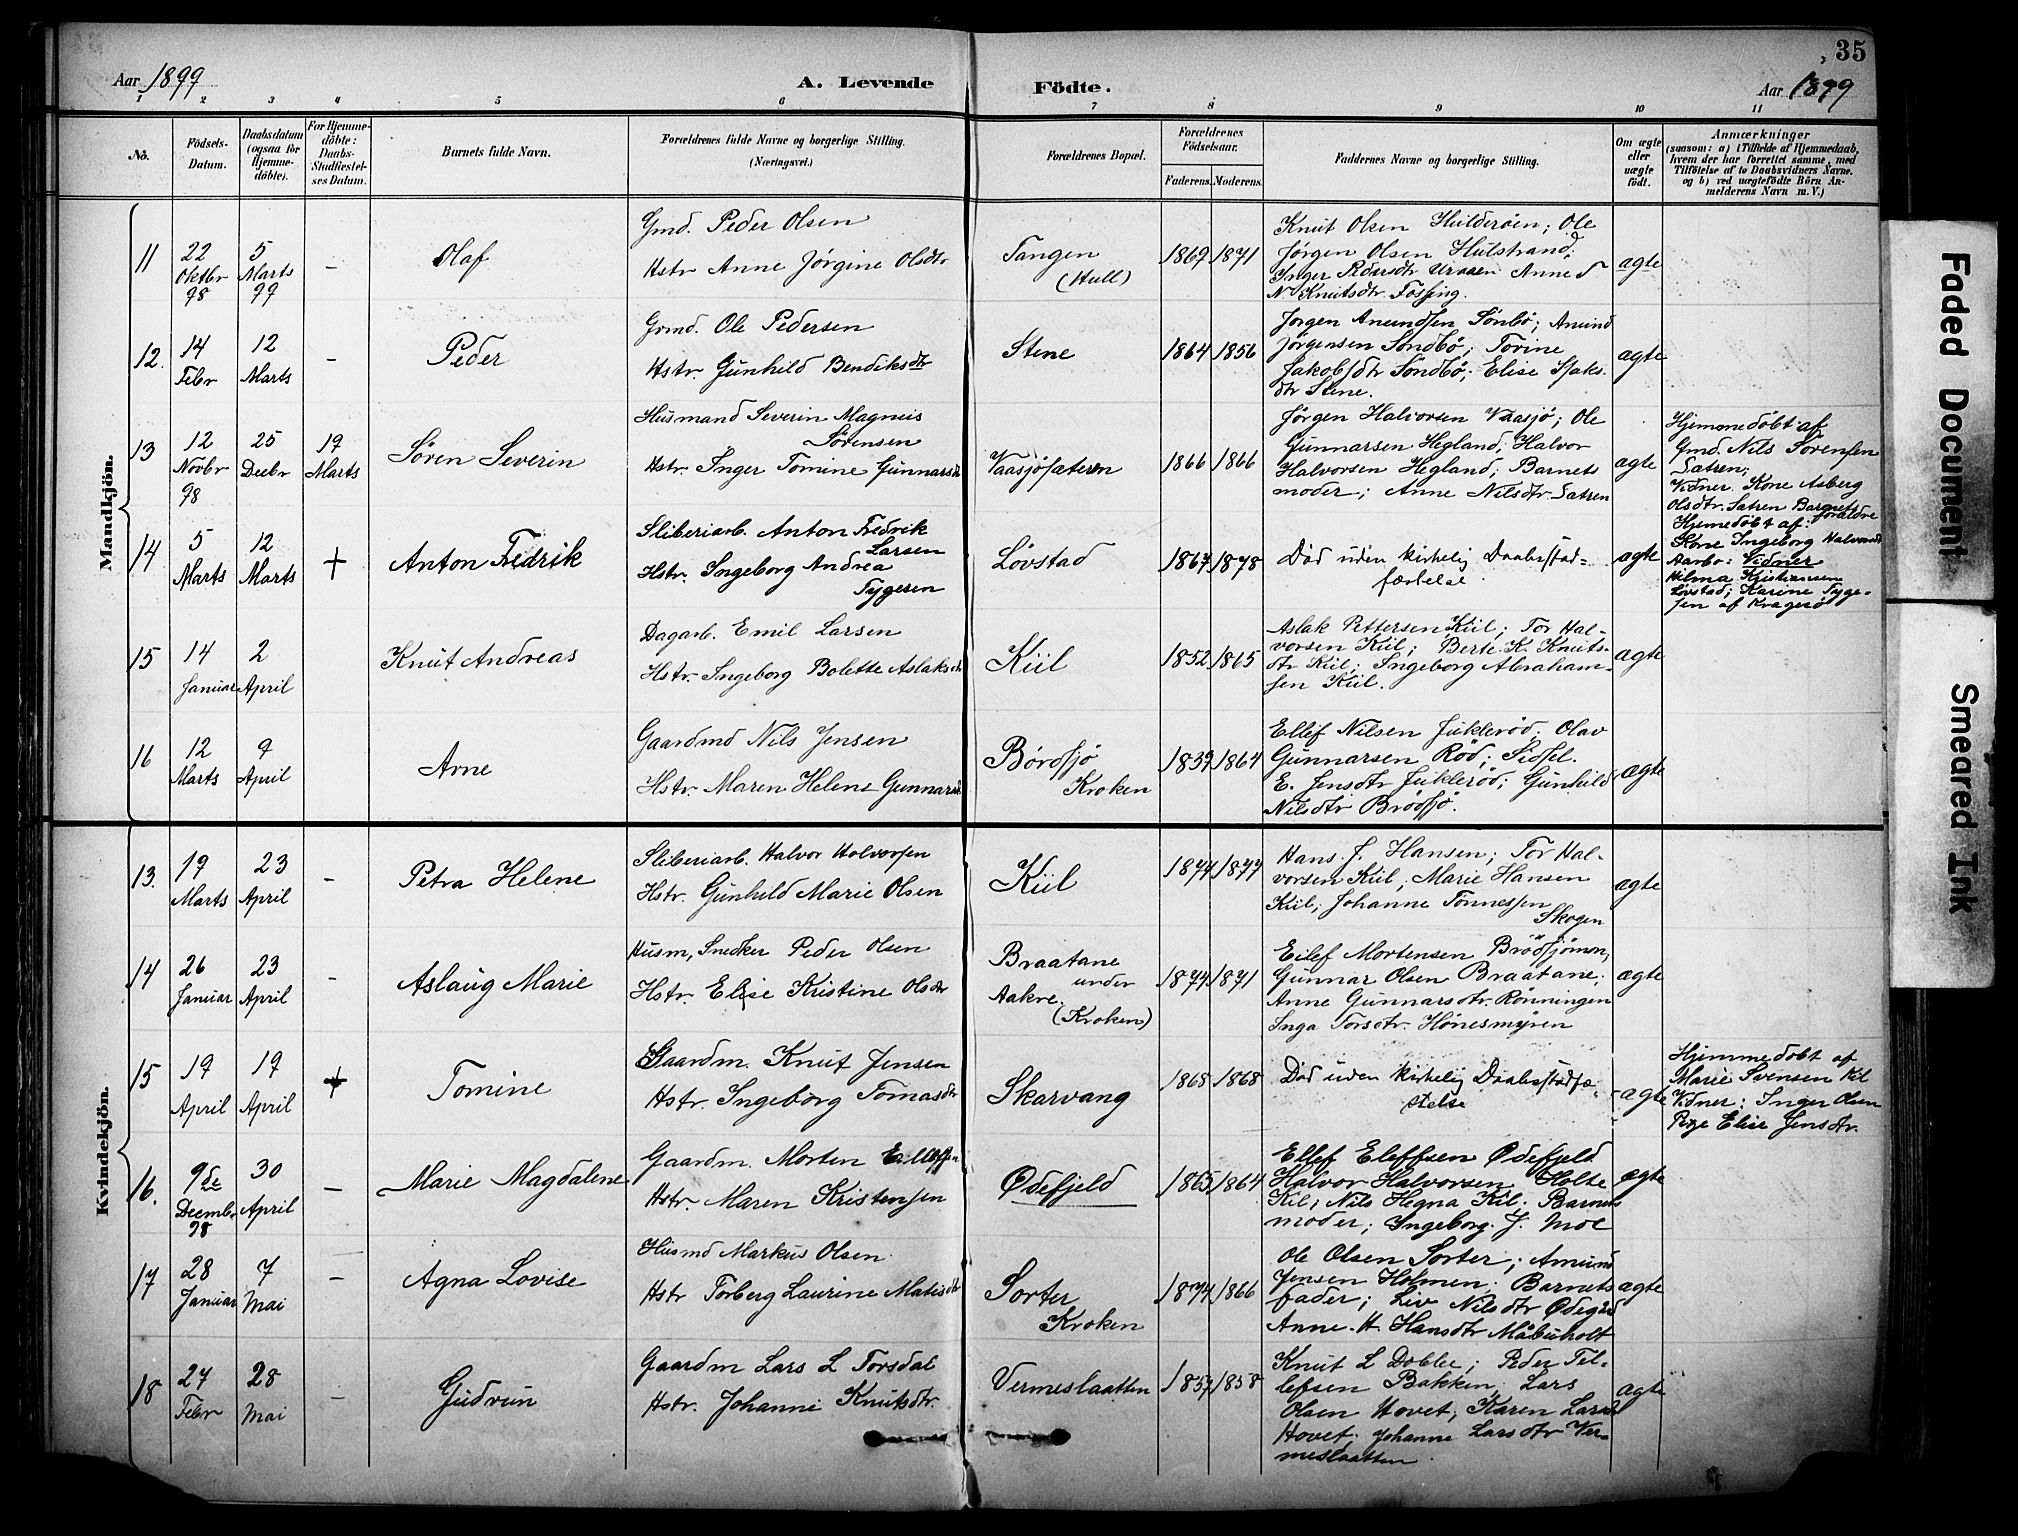 35
Aar 1899
A. Levende
Födte.
Aar 1899
1 2 3 4 5 6 7 8 9 10 11
No.
Födsels-
Datum.
Daabsdatum
(ogsaa for
Hjemme-
döbte).
For Hjemme-
döbte:
Daabs-
Stadfæstel-
ses Datum.
Barnets fulde Navn.
Forældrenes fulde Navne og borgerlige Stilling.
(Næringsvei.)
Forældrenes Bopæl.
Forældrenes
Födselsaar.
Faderens. Moderens.
Faddernes Navne og borgerlige Stilling.
Om ægte
eller
uægte
födt.
Anmærkninger
(saasom: a) i Tilfælde af Hjemmedaab,
hvem der har forrettet samme, med
Tilföielse af to Daabsvidners Navne,
og b) ved uægtefödte Börn An-
melderens Navn m. V.)
Mandkjön.
11
22
Oktbr
98
5
Marts
99
-
Olaf
Gmd. Peder Olsen
Hstr Anne Jørgine Olsdtr
Tangen
(Hull)
1869 1871
Knut Olsen Hulderøen; Ole
Jørgen Olsen Hulstrand;
Inger Pedersdtr Uraasen Anne
N. Knutsdtr Fossing.
ægte
12.
14
Febr
12
Marts
-
Peder
Grmd. Ole Pedersen
Hstr. Gunhild Bendiksdtr
Stene
1864 1856
Jørgen Anundsen Sönbö; Anund
Jørgensen Söndbö; Torine
Jakobsdtr Söndbö; Elise Isaks-
dtr Stene.
ægte
13
12
Novbr
98
25
Decbr
19
Marts
Sören Severin
Husmand Severin Magnus
Sørensen
Hstr. Inger Tomine Gunnarsdtr
Vaasjösæteren
1866 1866
Jørgen Halvorsen Vaasjö; Ole
Gunnarsen Hegland; Halvor
Halvorsen Hegland; Barnets
moder; Anne Nilsdtr Sætren
ægte
Hjemmedöbt af
Gmd. Nils Sörensen
Sætren;
Vidner. Kone Asberg
Olsdtr. Sætren Barnets
forældre
14
5
Marts
12
Marts
+
Anton Fredrik
Sliberiarb. Anton Fredrik
Larsen
Hstr. Ingeborg Andrea
Tygesen
Lövstad
1867 1878
Död uden kirkelig Daabsstad-
fæstelse
ægte
Hjemedöbt af:
Kone Ingeborg Halvorsdtr
Aarbo: Vidner
Hilma Kristiansen
Lövstad; Karine Tyge-
sen af Kragerö
15
14
Januar
2
April
Knut Andreas
Dagarb. Emil Larsen
Hstr. Ingeborg Bolette Aslaksdtr
Kiil
1852 1865
Aslak Pettersen Kiil; Tor Hal-
vorsen Kiil; Berte K. Knuts-
dtr Kiil; Ingeborg Abraham-
sen Kiil.
ægte
16
12
Marts
9
April
Arne
Gaardmd Nils Jensen
Hstr. Maren Helene Gunnarsdtr
Bördsjö
Kroken
1839 1864
Ellef Nilsen Juklerød. Olav
Gunnarsen Röd; Sidsel
E. Jensdtr Juklerød; Gunhild
Nilsdtr Brödsjö.
ægte
Kvindekjön.
13.
19
Marts
23
April
-
Petra Helene
Sliberiarb. Halvor Halvorsen
Hstr. Gunhild Marie Olsen
Kiil
1874 1877
Hans J. Hansen; Tor Hal-
vorsen Kiil; Marie Hansen
Kiil; Johanne Tønnessen
Skogen
ægte
14
26
Januar
23
April
-
Aslaug Marie
Husm, Snedker Peder Olsen
Hstr. Elise Kristine Olsdtr
Braatane
under
Aakre.
(Kroken)
1874 1871
Eilef Mortensen Brödsjömon;
Gunnar Olsen Braatane;
Anne Gunnarsdtr. Rönningen
Inga Torsdtr. Hönesmyren
ægte
15
19
April
19
April
+
Tomine
Gaardm. Knut Jensen
Hstr. Ingeborg Tomasdtr
Skarvang
1868 1868
Död uden kirkelig Daabsstadfæ-
stelse
ægte
Hjemmedöbt af
Marie Svensen Kil
Vidner: Inger Olsen
Elise Jensdtr.
16.
9de
Decembr
98
30
April
-
Marie Magdalene
Gaardm. Morten Elleffsen
Hstr. Maren Kristensen
Ødefjeld
1865 1864
Ellef Eleffsen Ødefjeld
Halvor Halvorsen Holte
Kil; Nils Hegna Kil; Barnets
moder; Ingeborg. J. Moe
ægte
17
28
Januar
7
Mai
-
Agna Lovise
Husmd Markus Olsen.
Hstr Torberg Laurine Matisdtr
Sorter
Kroken
1874 1866
Ole Olsen Sorter; Amund
Jensen Holmen. Barnets
fader; Liv Nilsdtr Ødegård
Anne. H. Hansdtr Måbuholt
ægte
18
27
Febr
28
Mai
-
Gudrun
Gaardm Lars L Torsdal
Hstr. Johanne Knutsdtr.
Vermeslaatten
1857 1858
Knut L Dobbe; Peder Tel-
lefsen Bakken; Lars
Olsen Hovet; Karen Larsdtr
Hovet. Johanne Larsdtr Ver-
meslaatten.
ægte
Faded Document
Smeared Ink